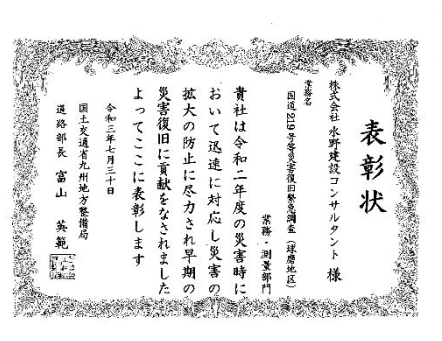 表彰状
株式会社 水野建設コンサルタント 様
業務名
国道219号等災害復旧緊急調査（球磨地区）
業務・測量部門
貴社は令和二年度の災害時に
おいて迅速に対応し災害の
拡大の防止に尽力され早期の
災害復旧に貢献をなされました
よってここに表彰します
令和三年七月三十日
国土交通省九州地方整備局
道路部長 富山 英範